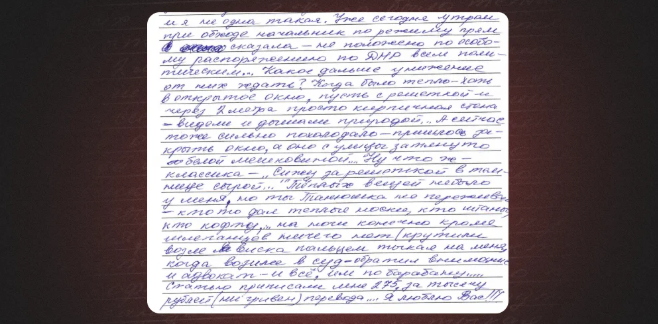 и я не одна такая. Уже сегодня утром
при обходе начальник по режиму прям
сказала – не положено по особо-
му распоряжению по ДНР всем поли-
тическим... Какое дальше унижение
от них ждать? Когда было тепло – хоть
в открытое окно, пусть с решоткой и
через 2 метра просто кирпичная стена
– видели и дышали природой... А сейчас
тоже сильно похолодало – пришлось за-
крыть окно, а оно с улицы затянуто
белой мешковиной... Ну что ж –
классика – „Сижу за решоткой в тем-
нице сырой..." Тёплых вещей не было
у меня, но ты Танюшка не переживай
– кто то дал теплые носки, кто штаны
кто кофту,... на ноги конечно кроме
шлепанцев ничего нет (крутили
возле виска пальцем тыкая на меня,
когда возили в суд – обратил внимание
и адвокат – и всё, им по барабану.....
Статью приписали мне 275, за тысячу
рублей (не гривен) перевода.... Я люблю Вас!!!